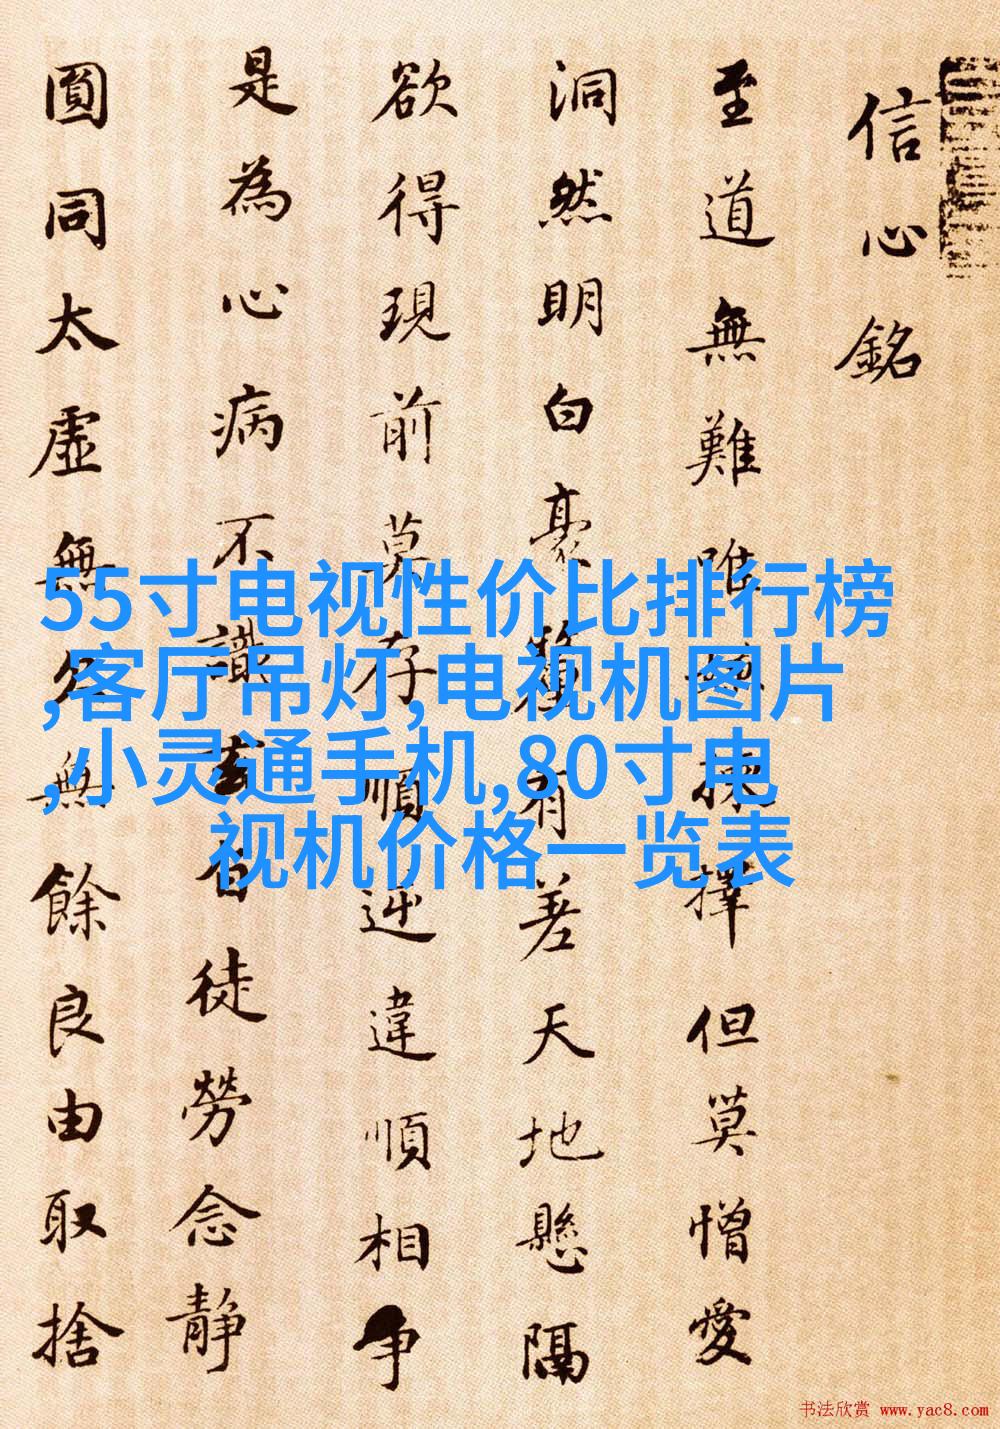 信心銘
至道無難唯嫌揀擇但莫憎愛
洞然明白豪釐有差天地懸隔
欲得現前莫存順逆違順相争
是為心病不識玄旨徒勞念静
圓同太虛無欠無餘良由取捨
55寸电视性价比排行榜
,客厅吊灯,电视机图片
,小灵通手机,80寸电
视机价格一览表
书法欣赏 www.yac8.com